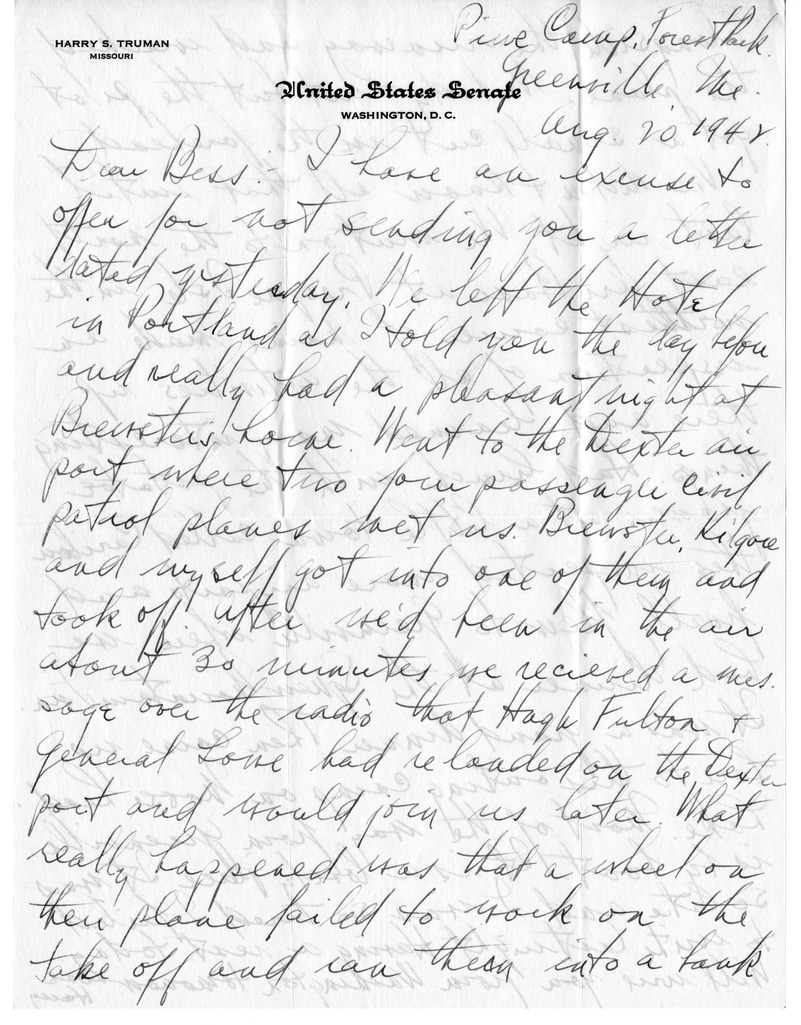 HARRY S. TRUMAN
MISSOURI
Pine Camp, Forest Park.
Greenville Me.
United States Senate
WASHINGTON, D. C.
Aug. 20 1942.
Dear Bess:- I have an excuse to
offer for not sending you a letter
dated yesterday. We left the Hotel
in Portland as I told you the day before
and really had a pleasant night at
Brewster's home. Went to the Dexter air
port where two four passenger civil
patrol planes met us. Brewster, Kilgore
and myself got into one of them and
took off. After we'd been in the air
about 30 minutes we recieved a mes.
sage over the radio that Hugh Fulton +
General Lowe had relanded on the Dexter
port and would join us later. What
really happened was that a wheel on
their plane failed to work on the
take off and ran them into a bank